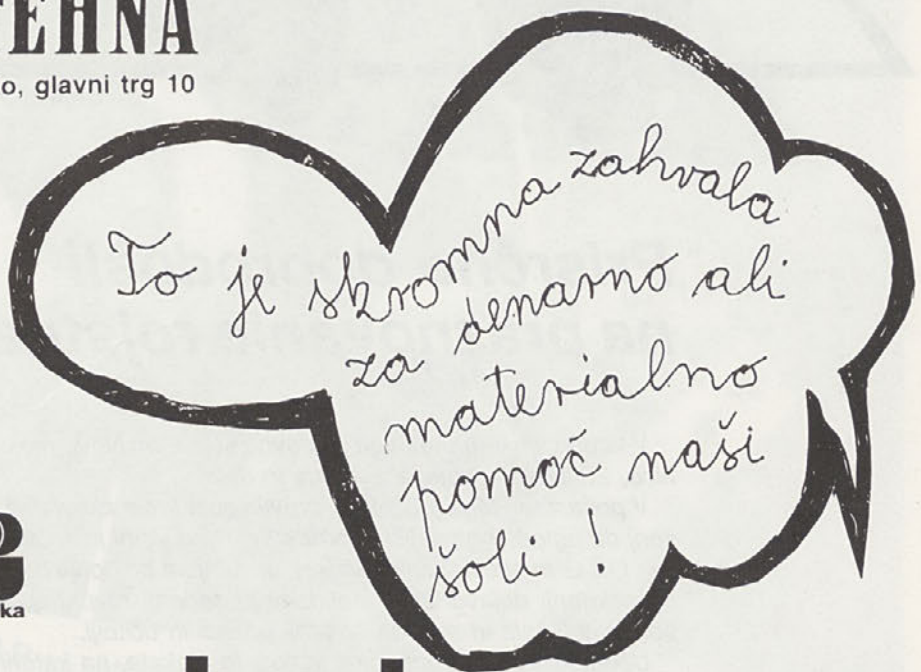 TEHNA
o, glavni trg 10
To je skromna zahvala
za denarno ali
materialno
pomoč naši
šoli !
ka